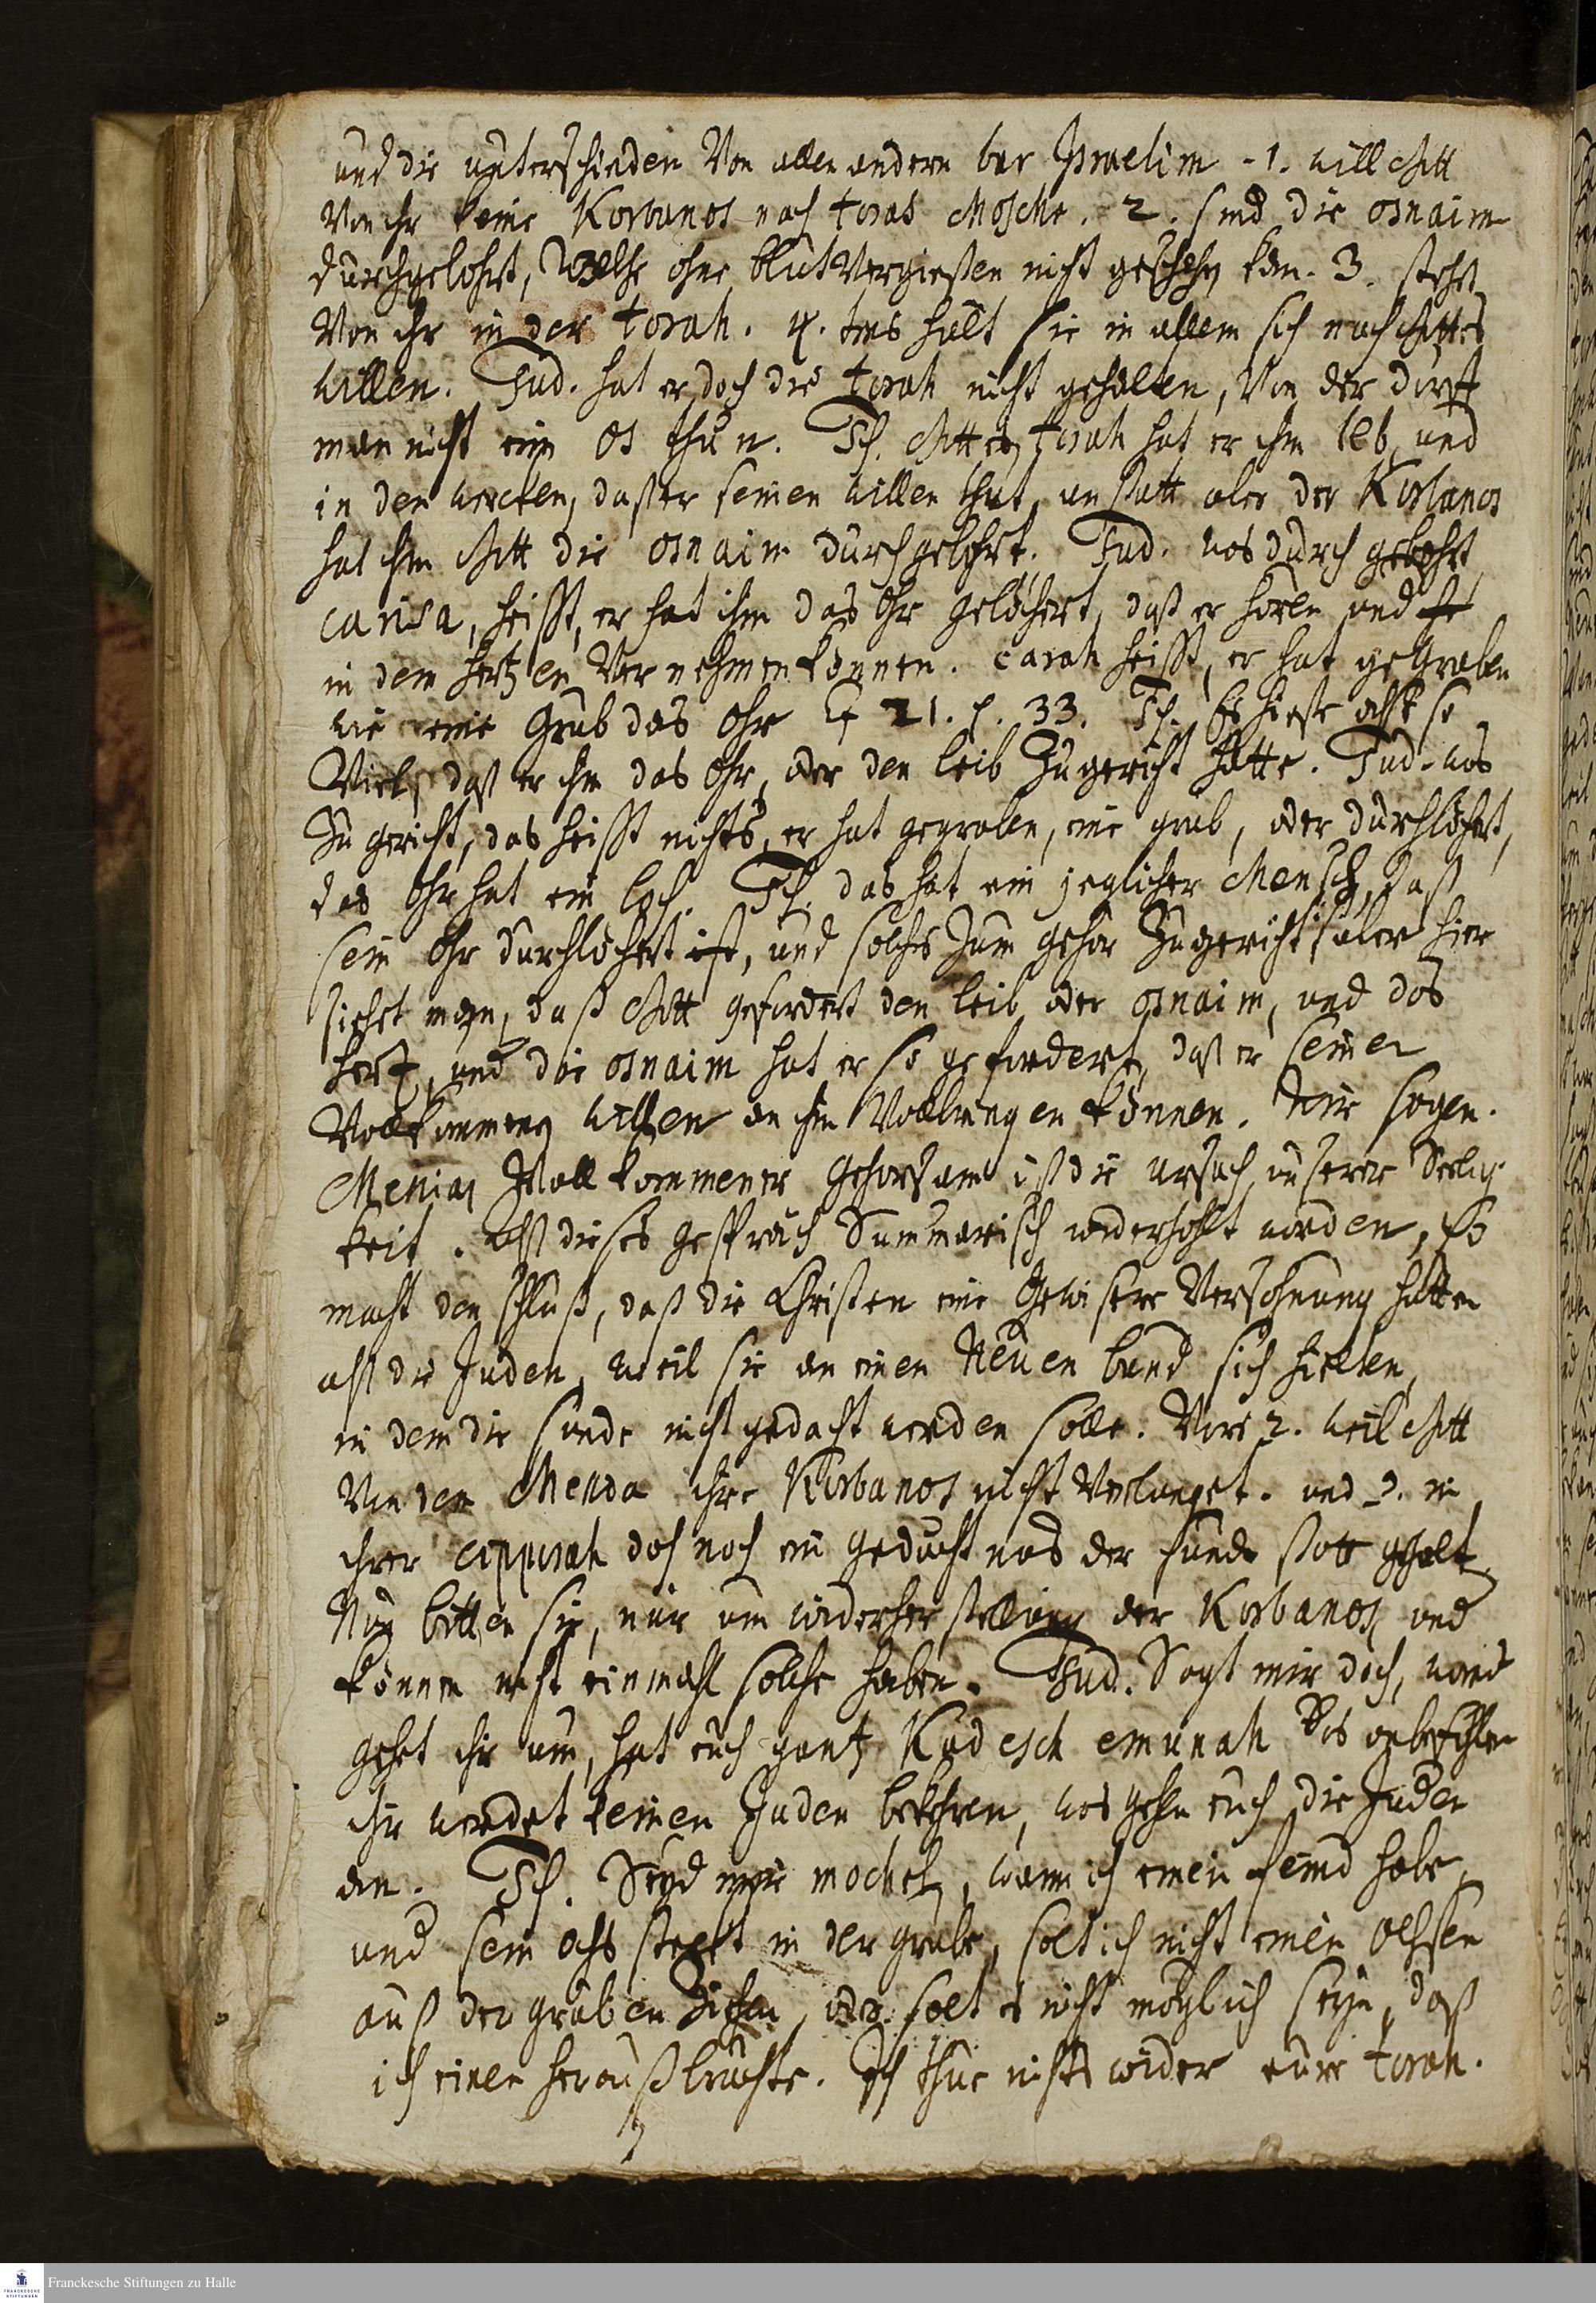 und die unterschieden Von allen andern bar Jsraelim - 1. will Gott
Von ihr keine Korbanos nach toras Mosche. 2. sind die osnaim
durchgelöhrt, welche ohne blut Vergießen nicht geschehen kan. 3. stehet
Von ihr in der torah. 4. hält sie in allem sich nach Gottes
willen. Jud. hat er doch die torah nicht gehalten, Von der dorfft
man nicht ein os thun. Jch. Gottes torah hat er im leb und
in den wercken, daß er seinen willen thut, an statt aber der Korbanos
hat ihm Gott die osnaim durchgelöhrt. Jud. was durch gelöhrt
carisa, heisst, er hat ihm das Ohr gelöchert, daß er hören und
in dem hertzen Vernehmen können. carah heisst, er hat gegraben
wie eine Grub das Ohr Ex 21. p. 33. Jch. Es hieße also so
Viel, daß er ihm das Ohr, oder den leib Zugericht hätte. Jud. was
Zugericht, das heisst nichts, er hat gegraben, eine grub, oder durchlöchert,
das Ohr hat ein loch. Jch. das hat ein jeglicher Mensch, daß
sein Ohr durchlöchert ist, und solches zum gehör Zugericht, aber hier
siehet man, daß Gott gefordert den leib oder osnaim, und das
hertz, und die osnaim hat er so gefordert, daß er seinen
Vollkommenen willen an ihm Vollbringen können. Wir sagen.
Messias Vollkommener Gehorsam ist die ursach unserer Seelig
keit. Alß dieses gespräch Summarisch widerhohlt worden, so
macht den schluß, daß die Christen eine Gewisere Versöhnung hätten
alß die Juden, weil sie an einen Neuen bund sich hielten,
in dem die sünde nicht gedacht werden solle. Vors 2. weil Gott
Von den ihre Korbanos nicht Verlanget. und 3. in
ihrer cippurah doch noch ein gedächtnus der sünde statt
Nun bitten sie, nur um widerherstellung der Korbanos und
können nicht einmahl solche haben. Jud. Sagt mir doch, womit
gehet ihr um, hat euch gantz Kadesch emunah das anbefohlen
ihr werdet keinen Juden bekehren, was gehen euch die Juden
an. Jch. Seyd mir mochel, wann ich einen feind habe,
und sein ochs steckt in der grube, solt ich nicht einen Ochsen
auß der gruben ziehen, oder solt es nicht möglich seyn, daß
ich einen heraußbrächte. Jch thue nichts wider eure torah.
Franckesche Stiftungen zu Halle